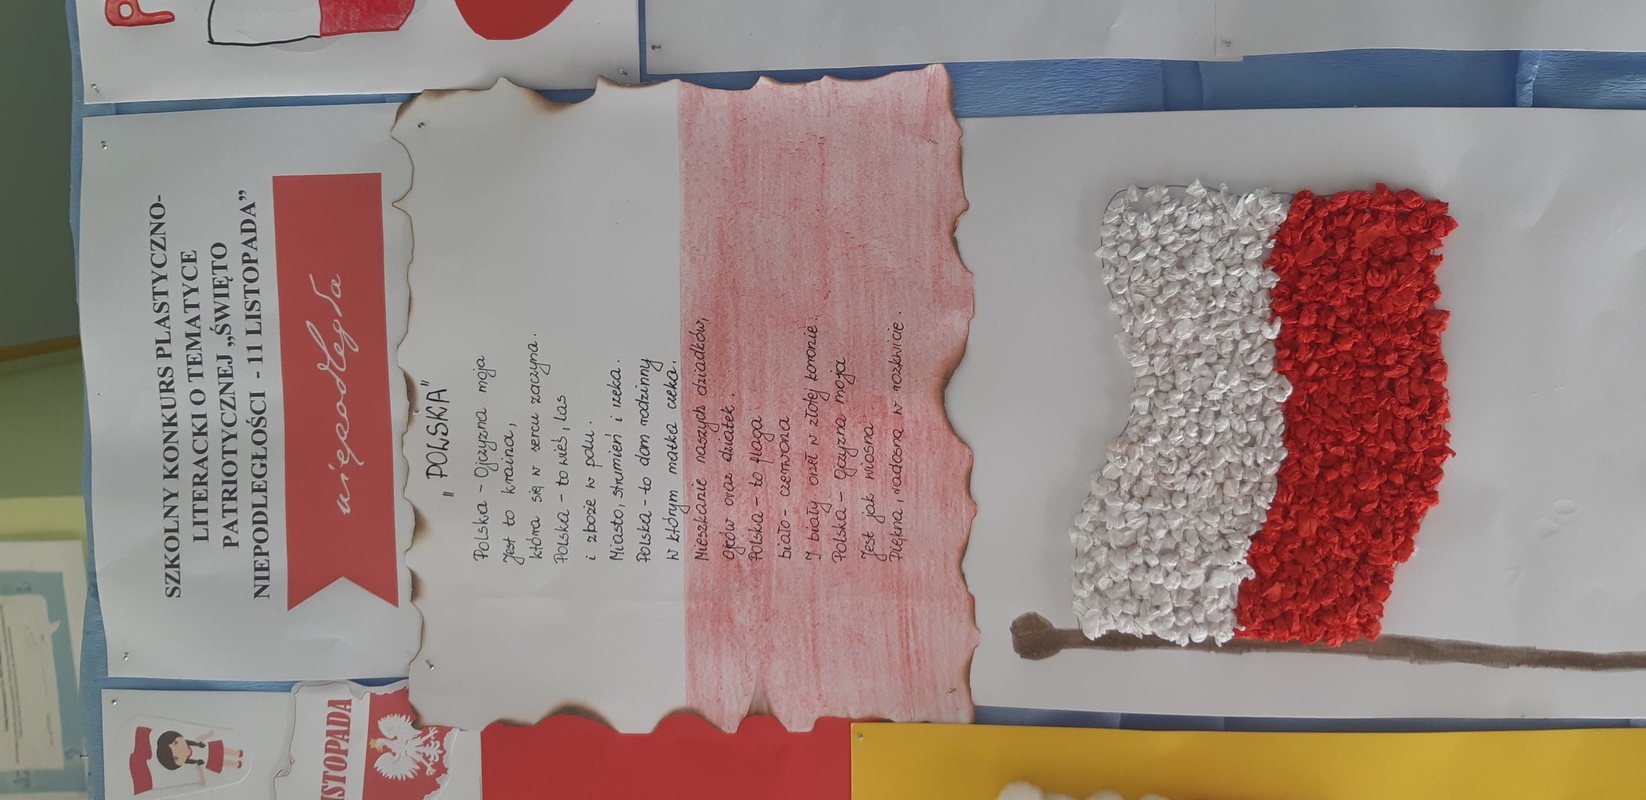 SZKOLNY KONKURS PLASTYCZNO-
LITERACKI O TEMATYCE
PATRIOTYCZNEJ „ŚWIĘTO
NIEPODLEGŁOŚCI - 11 LISTOPADA”
niepodległa
„POLSKA”
Polska - Ojczyzna moja
Jest to kraina,
która się w sercu zaczyna.
Polska - to wieś, las
i zboże w polu.
Miasto, strumień i rzeka.
Polska - to dom rodzinny
w którym matka czeka.
Mieszkanie naszych dziadków,
ojców oraz dziatek.
Polska - to flaga
biało - czerwona
I biały orzeł w złotej koronie.
Polska - Ojczyzna moja
Jest jak wiosna
Piękna, radosna w rozkwicie.
ISTOPADA